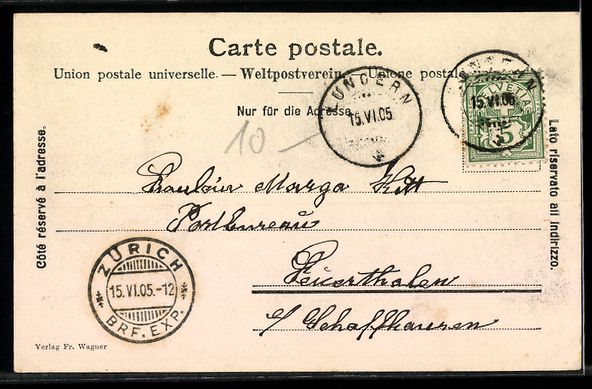 Carte postale.
Union postale universelle. — Weltpostverein. — Unione postale
Nur für die Adresse.
LUNGERN
15.VI.05
LUNGERN
15.VI.05
HELVETIA
5
10 —
Côté réservé à l'adresse.
Lato riservato all indirizzo.
Fräulein Marga Hitt
Postbureau
Feuerthalen
b/ Schaffhausen
ZÜRICH
15.VI.05.-12
BRF. EXP.
Verlag Fr. Wagner